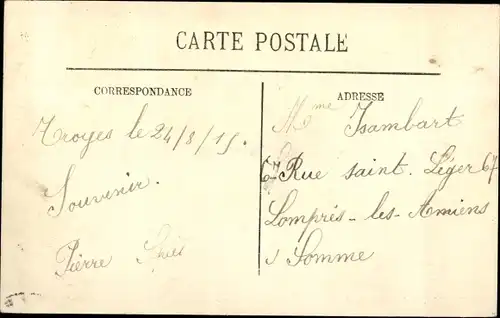 CARTE POSTALE
CORRESPONDANCE
Troyes le 24/8/15.
Souvenir.
Pierre
ADRESSE
Mme Isambart
67 Rue saint. Léger 67
Lomprés - les - Amiens
Somme